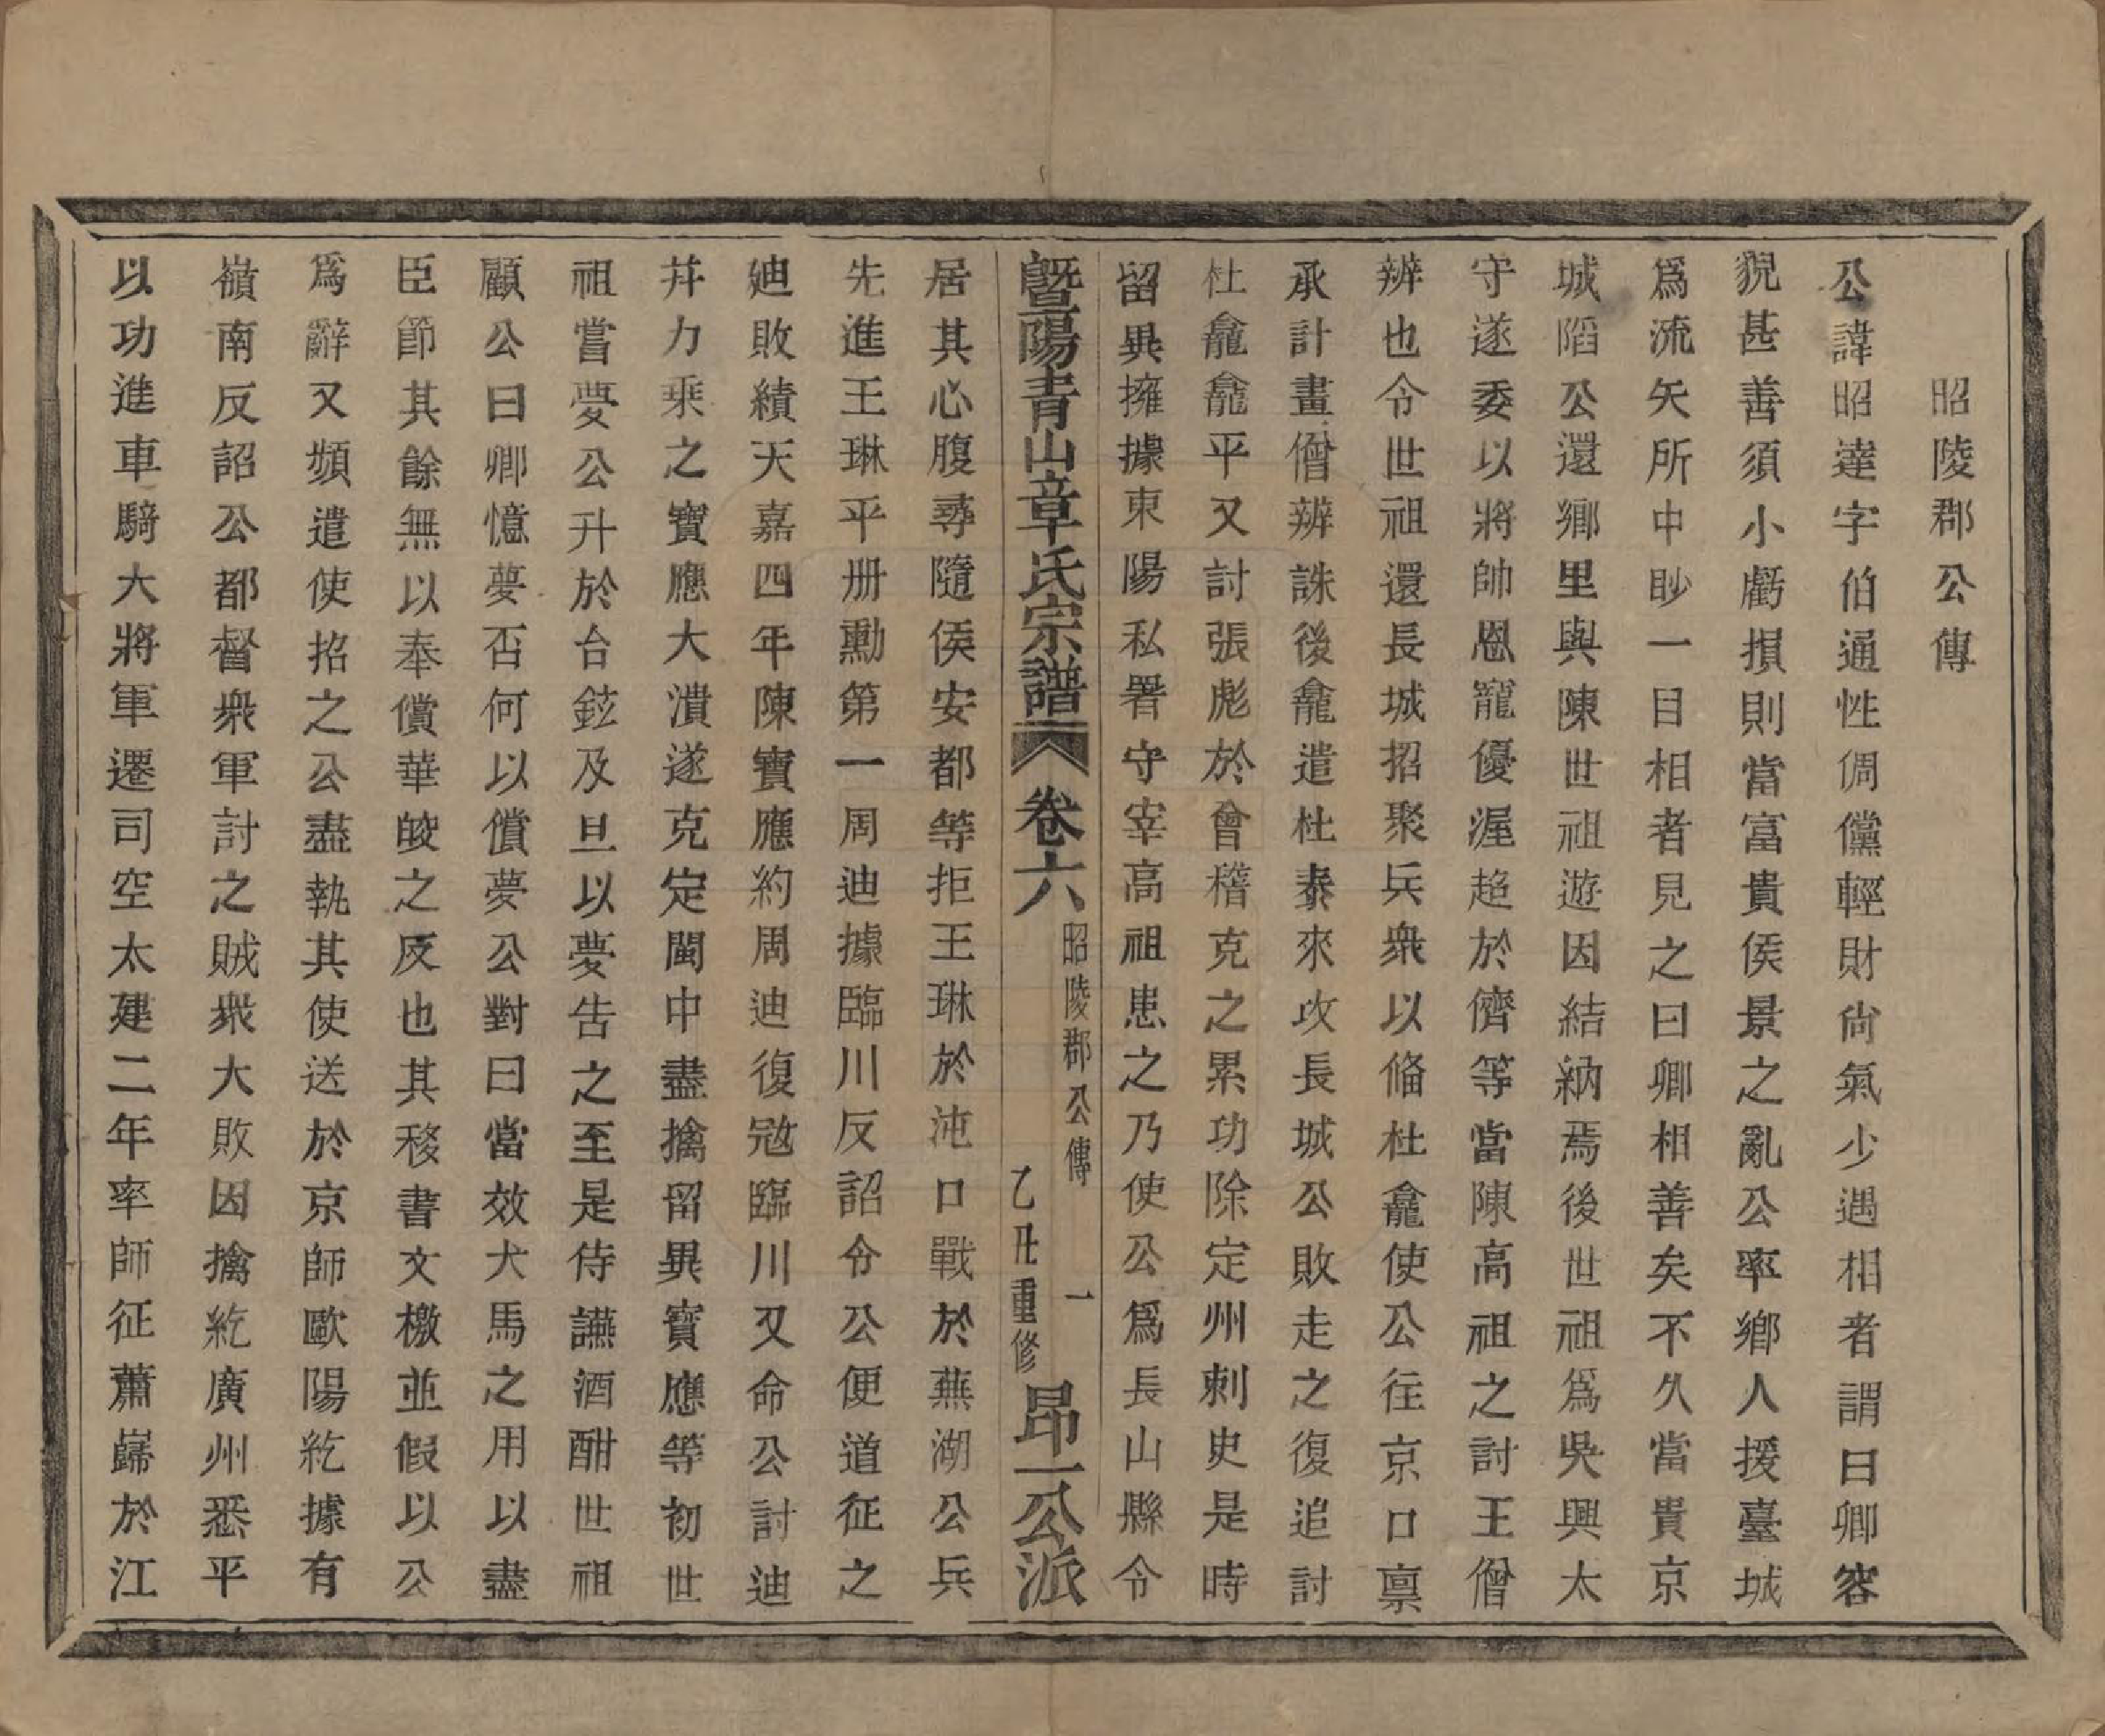 昭陵郡公傳
公諱昭達字伯通性倜儻輕財尙氣少遇相者謂曰卿容
貌甚善須小虧損則當富貴侯景之亂公率鄉人援臺城
爲流矢所中眇一目相者見之曰卿相善矣不久當貴京
城陷公還鄉里與陳世祖遊因結納焉後世祖爲吳興太
守遂委以將帥恩寵優渥超於儕等當陳高祖之討王僧
辨也令世祖還長城招聚兵衆以俻杜龕使公往京口禀
承計畫僧辨誅後龕遣杜泰來攻長城公敗走之復追討
杜龕龕平又討張彪於會稽克之累功除定州刺史是時
留異擁據東陽私署守宰高祖患之乃使公爲長山縣令
暨陽青山章氏宗譜 卷六 昭陵郡公傳 一 乙丑重修 昂一公派
居其心腹尋隨侯安都等拒王琳於沌口戰於蕪湖公兵
先進王琳平册勳第一周迪據臨川反詔令公便道征之
廸敗績天嘉四年陳寶應約周迪復冦臨川又命公討迪
幷力乘之寶應大潰遂克定閩中盡擒留異寶應等初世
祖嘗夢公升於台鉉及旦以夢告之至是侍讌酒酣世祖
顧公曰卿憶夢否何以償夢公對曰當效犬馬之用以盡
臣節其餘無以奉償華皎之反也其移書文檄並假以公
爲辭又頻遣使招之公盡執其使送於京師歐陽紇據有
嶺南反詔公都督衆軍討之賊衆大敗因擒紇廣州悉平
以功進車騎大將軍遷司空太建二年率師征蕭巋於江